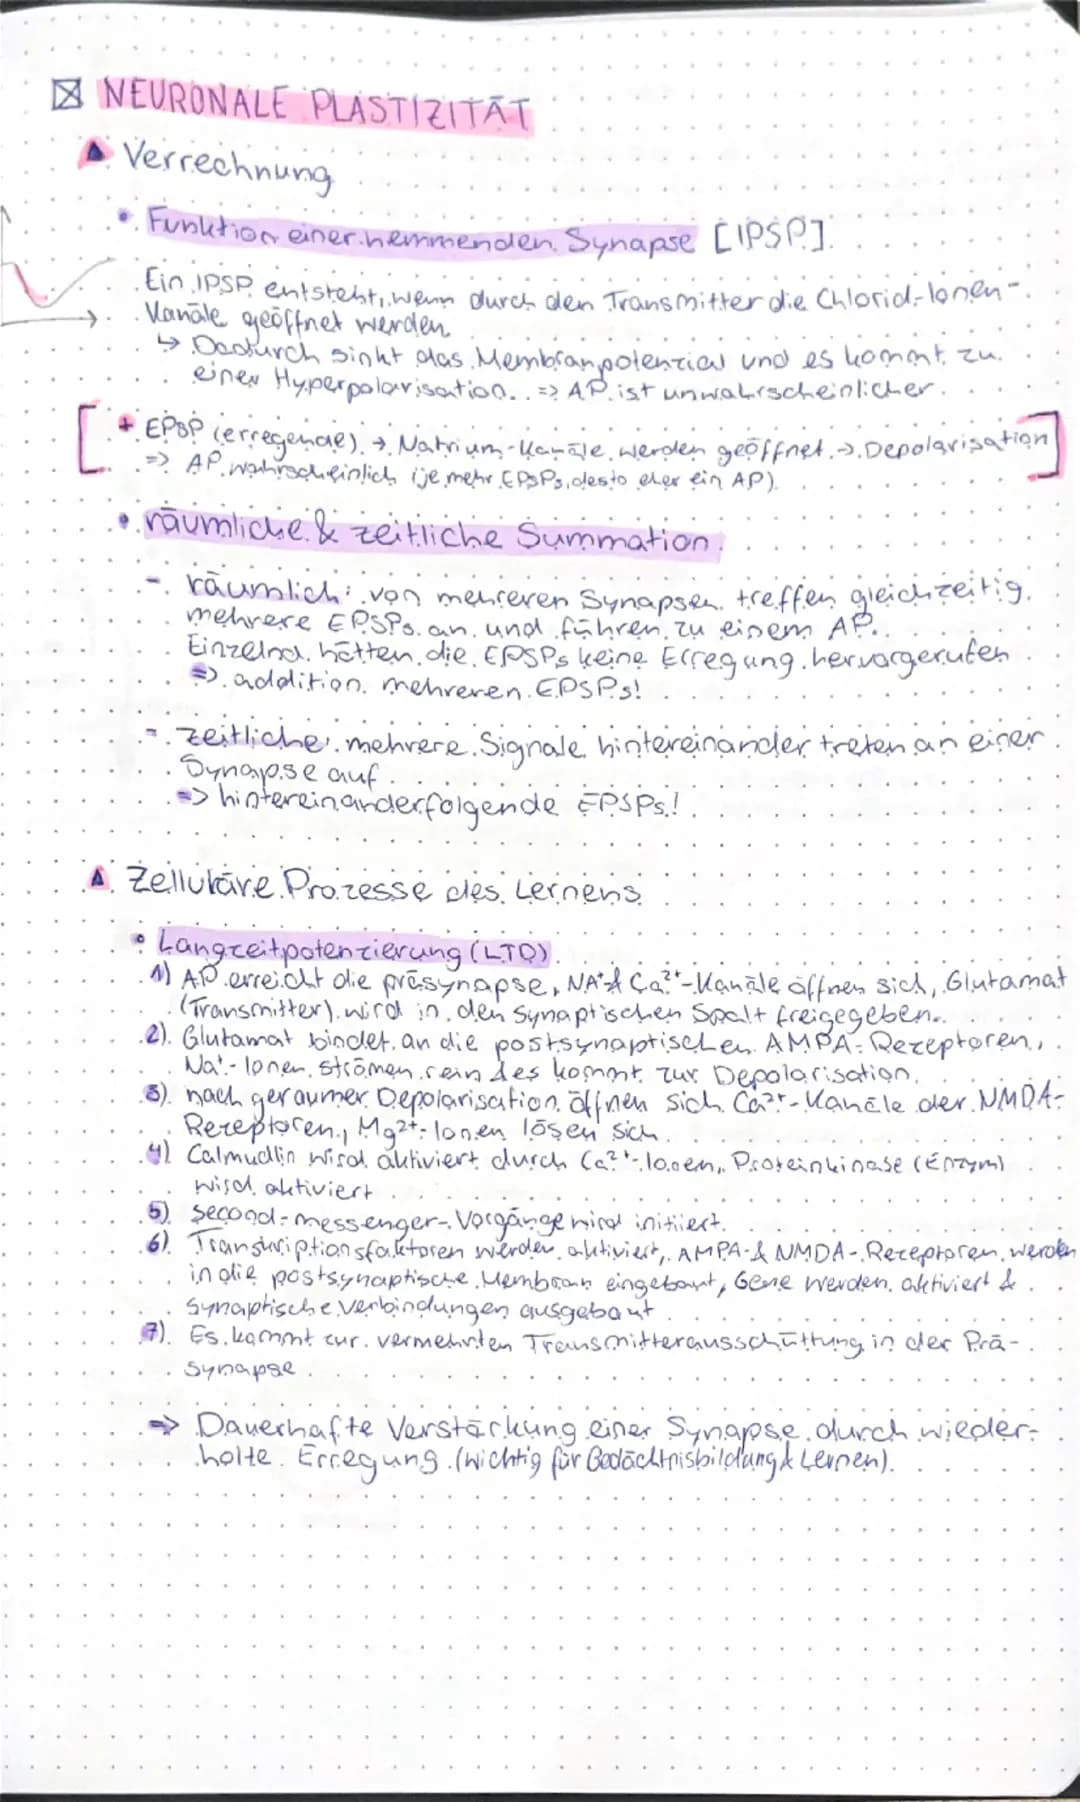 NEURONALE PLASTIZITÄT
Verrechnung
• Funktion einer hemmenden Synapse [IPSP]
Ein IPSP entsteht, wenn durch den Transmitter die Chlorid-Ionen-
Kanäle geöffnet werden
↳ Dadurch sinkt das Membranpotenzial und es kommt zu
einer Hyperpolarisation. => AP ist unwahrscheinlicher.
[+ EPSP (erregende) → Natrium-Kanäle werden geöffnet → Depolarisation]
=> AP wahrscheinlich (je mehr EPSPs, desto eher ein AP)
• räumliche & zeitliche Summation
- räumlich: von mehreren Synapsen treffen gleichzeitig
mehrere EPSPs an und führen zu einem AP.
Einzelnd hätten die EPSPs keine Erregung hervorgerufen
=> addition mehreren EPSPs!
- zeitliche: mehrere Signale hintereinander treten an einer
Synapse auf
=> hintereinanderfolgende EPSPs!
Zelluläre Prozesse des Lernens
• Langzeitpotenzierung (LTD)
1) AP erreicht die präsynapse, NA⁺ & Ca²⁺-Kanäle öffnen sich, Glutamat
(Transmitter) wird in den synaptischen Spalt freigegeben.
2) Glutamat bindet an die postsynaptischen AMPA-Rezeptoren,
Na⁺-Ionen strömen rein & es kommt zur Depolarisation.
3) nach geraumer Depolarisation öffnen sich Ca²⁺-Kanäle der NMDA-
Rezeptoren, Mg²⁺-Ionen lösen sich
4) Calmudlin wird aktiviert durch Ca²⁺-Ionen, Proteinkinase (Enzym)
wird aktiviert
5) second-messenger-Vorgänge wird initiiert.
6) Transkriptionsfaktoren werden aktiviert, AMPA-& NMDA-Rezeptoren werden
in die postsynaptische Membran eingebaut, Gene werden aktiviert &
synaptische Verbindungen ausgebaut
7) Es kommt zur vermehrten Transmitterausschüttung in der Prä-
synapse
=> Dauerhafte Verstärkung einer Synapse durch wieder-
holte Erregung (wichtig für Gedächtnisbildung & Lernen).